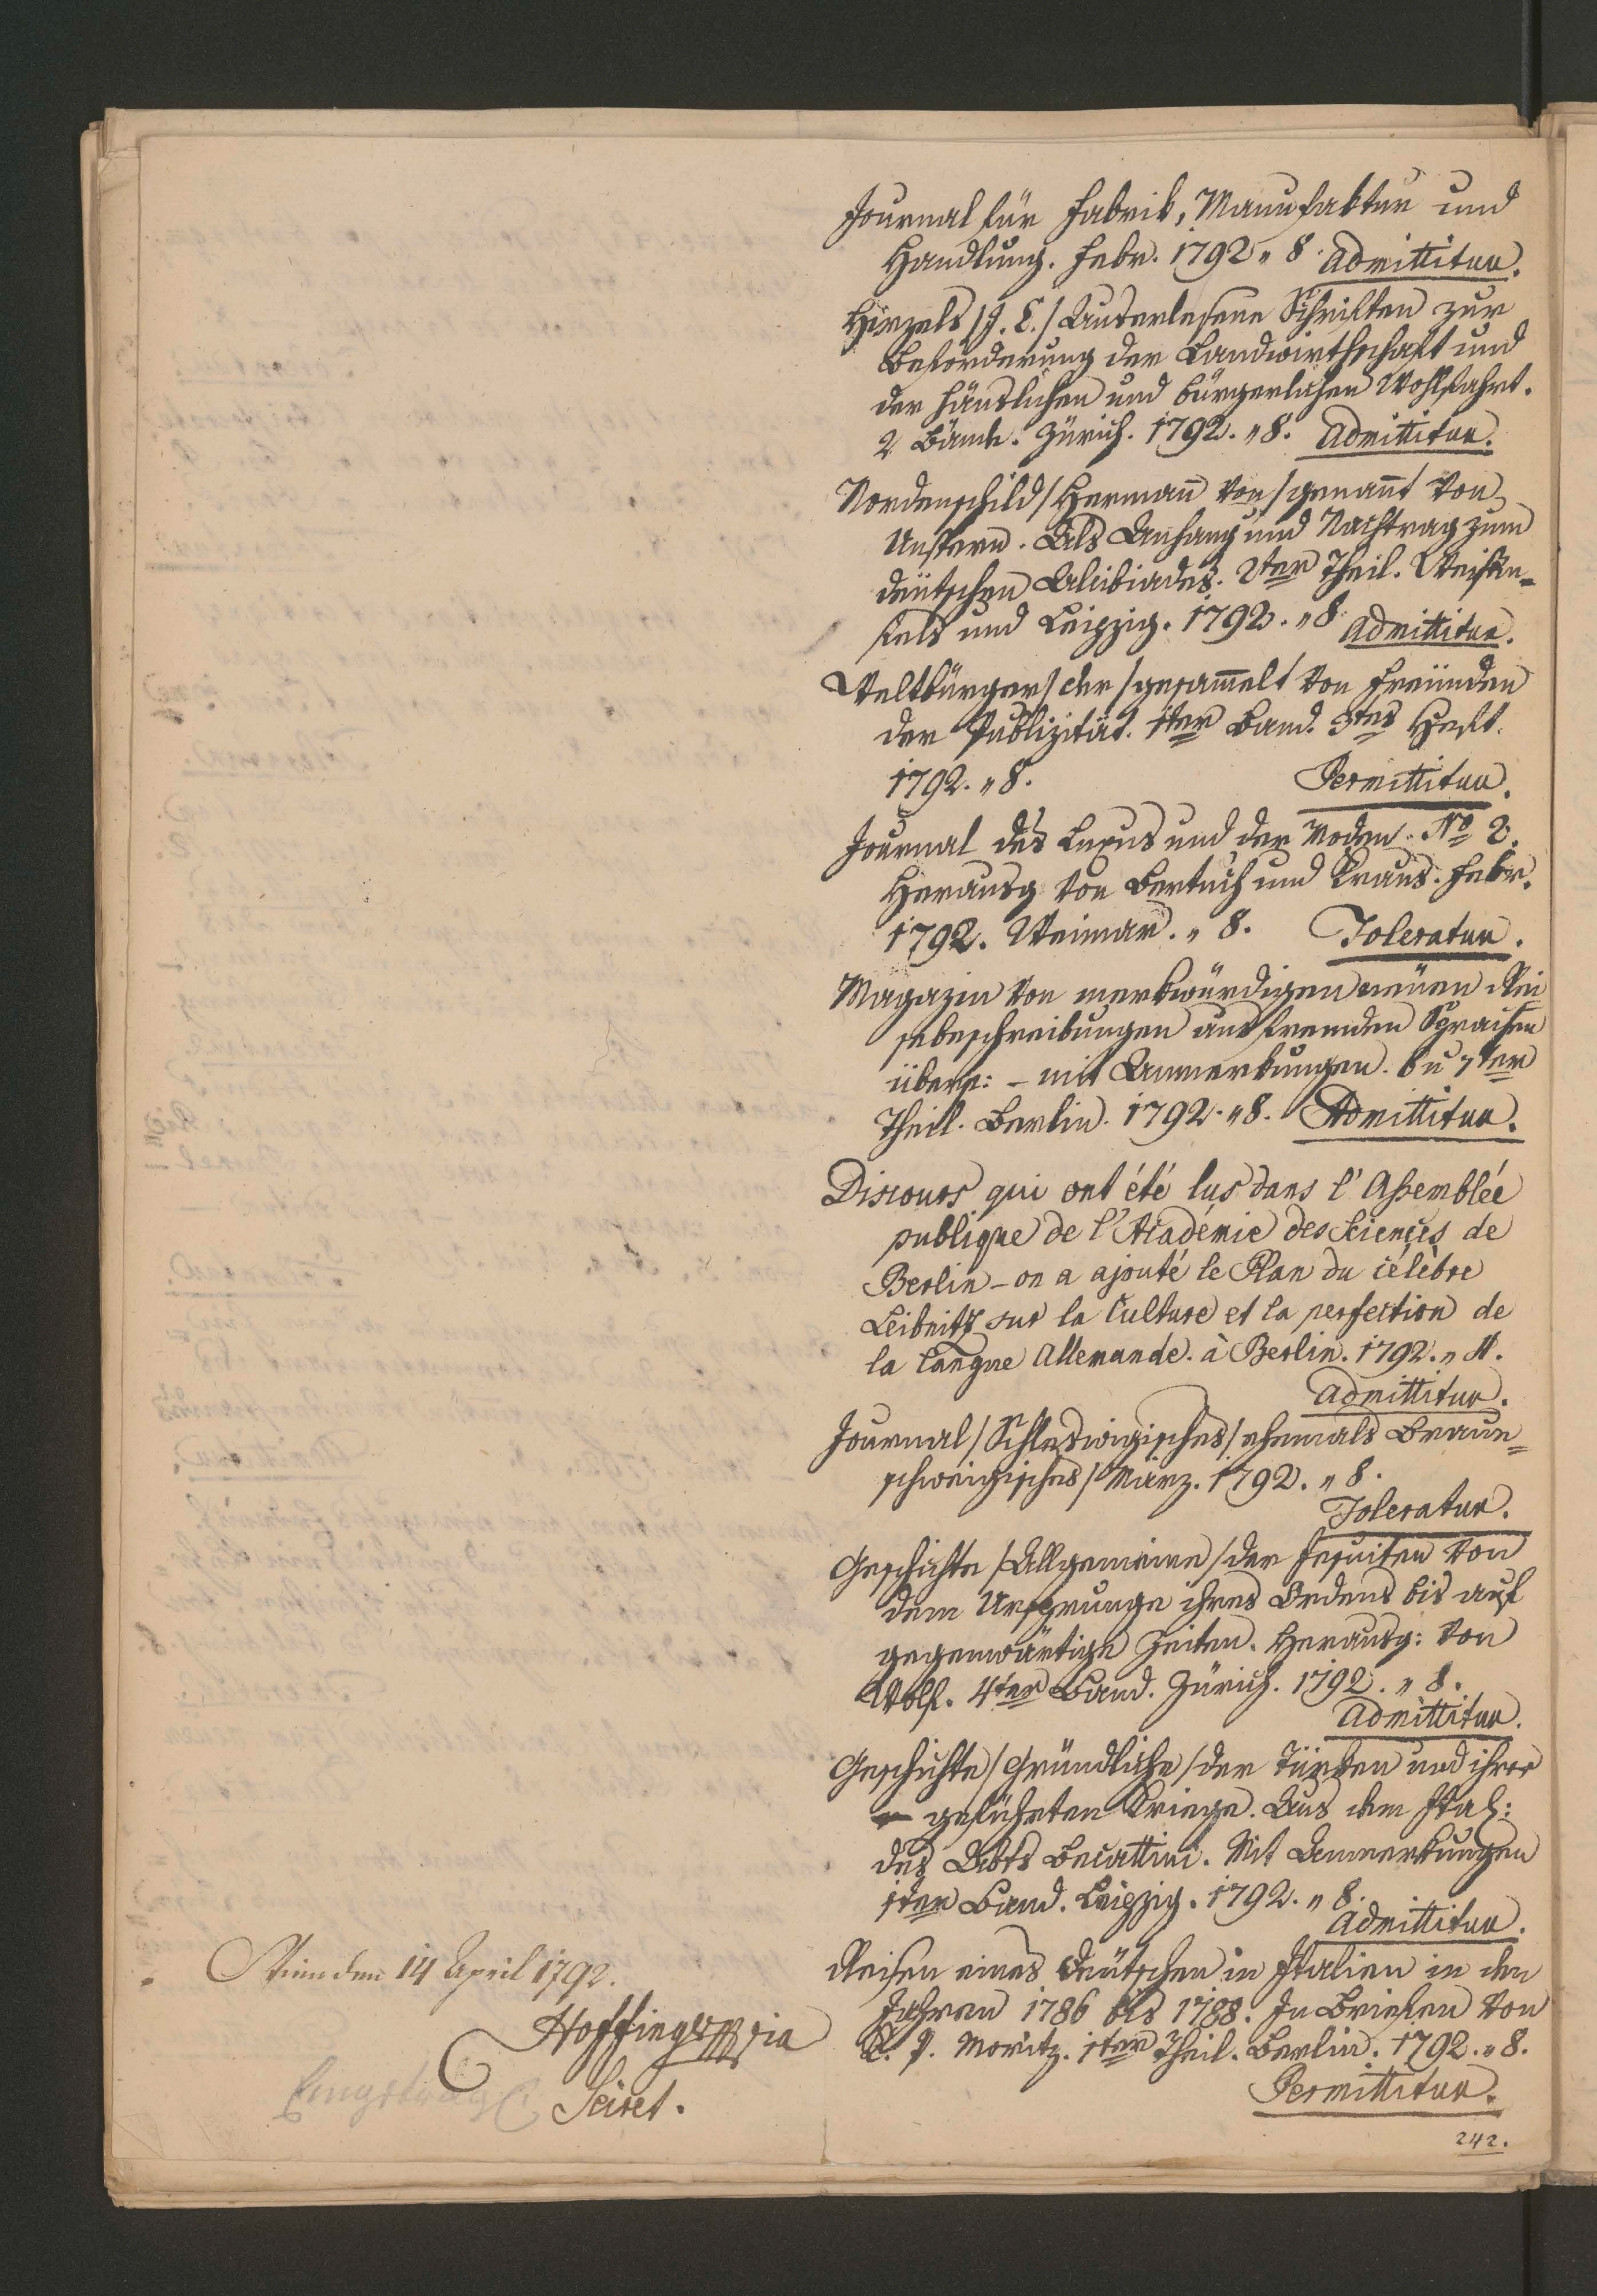 Journal für Fabrik, Manufaktur und
Handlung. Febr. 1792 „ 8. Admittitur.
Hirzels /J. C./ Auserlesene Schriften zur
Beförderung der Landwirthschaft und
der häuslichen und bürgerlichen Wohlfahrt.
2 Bände. Zürich. 1792. „ 8. Admittitur.
Nordenschild /Herman̄ von/ genan̄t von
Unstern. Als Anhang und Nachtrag zum
deütschen Alcibiades. 2ter Theil. Weißen=
fels und Leipzig. 1792. „ 8. Admittitur.
Weltbürger/ der /gesam̄elt von Freünden
der Publizität. 1ter Band. 3tes Heft.
1792. „ 8. Permittitur.
Journal des Luxus und der Moden. No 2.
Herausg von Bertuch und Kraus. Febr.
1792. Weimar. „ 8. Toleratur.
Magazin von merkwürdigen neüen Rei
sebeschreibungen aus fremden Sprachen
übers: – mit Anmerkungen. 6 u 7ter
Theil. Berlin. 1792. „ 8. Admittitur.
Discours qui ont été lus dans l'Assemblée
publique de l'Académie des Sciences de
Berlin – on a ajouté le Plan du célèbre
Leibnitz sur la Culture et la perfection de
la Langue Allemande. à Berlin. 1792. „ 4.
Admittitur.
Journal / Schleswigisches / ehemals Braun=
schweigisches / März. 1792. „ 8.
Toleratur.
Geschichte / Allgemeine / der Jesuiten von
dem Ursprunge ihres Ordens bis auf
gegenwärtige Zeiten. Herausg: von
Wolf. 4ter Band. Zürich. 1792. „ 8.
Admittitur.
Geschichte / Gründliche / der Türken und ihrer
geführten Kriege. Aus dem Ital:
des Abts Becattini. Mit Anmerkungen
1ter Band. Leipzig. 1792. „ 8.
Admittitur.
Reisen eines Deütschen in Italien in den
Jahren 1786 bis 1788. In Briefen von
K. P. Moritz. 1ter Theil. Berlin. 1792. „ 8.
Permittitur.
242.
Wien den 14 April 1792.
Hoffinger